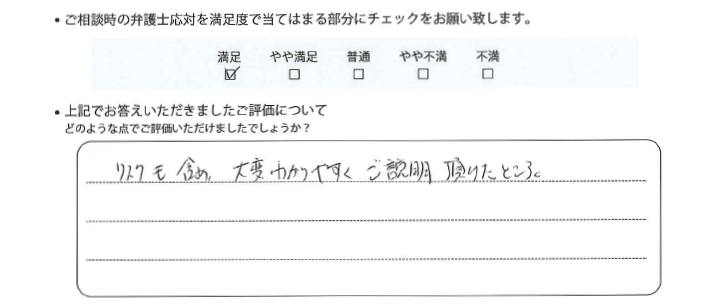 • ご相談時の弁護士応対を満足度で当てはまる部分にチェックをお願い致します。
満足 やや満足 普通 やや不満 不満
☑ □ □ □ □
• 上記でお答えいただきましたご評価について
どのような点でご評価いただけましたでしょうか？
リスクも含め、大変わかりやすくご説明頂けたところ。